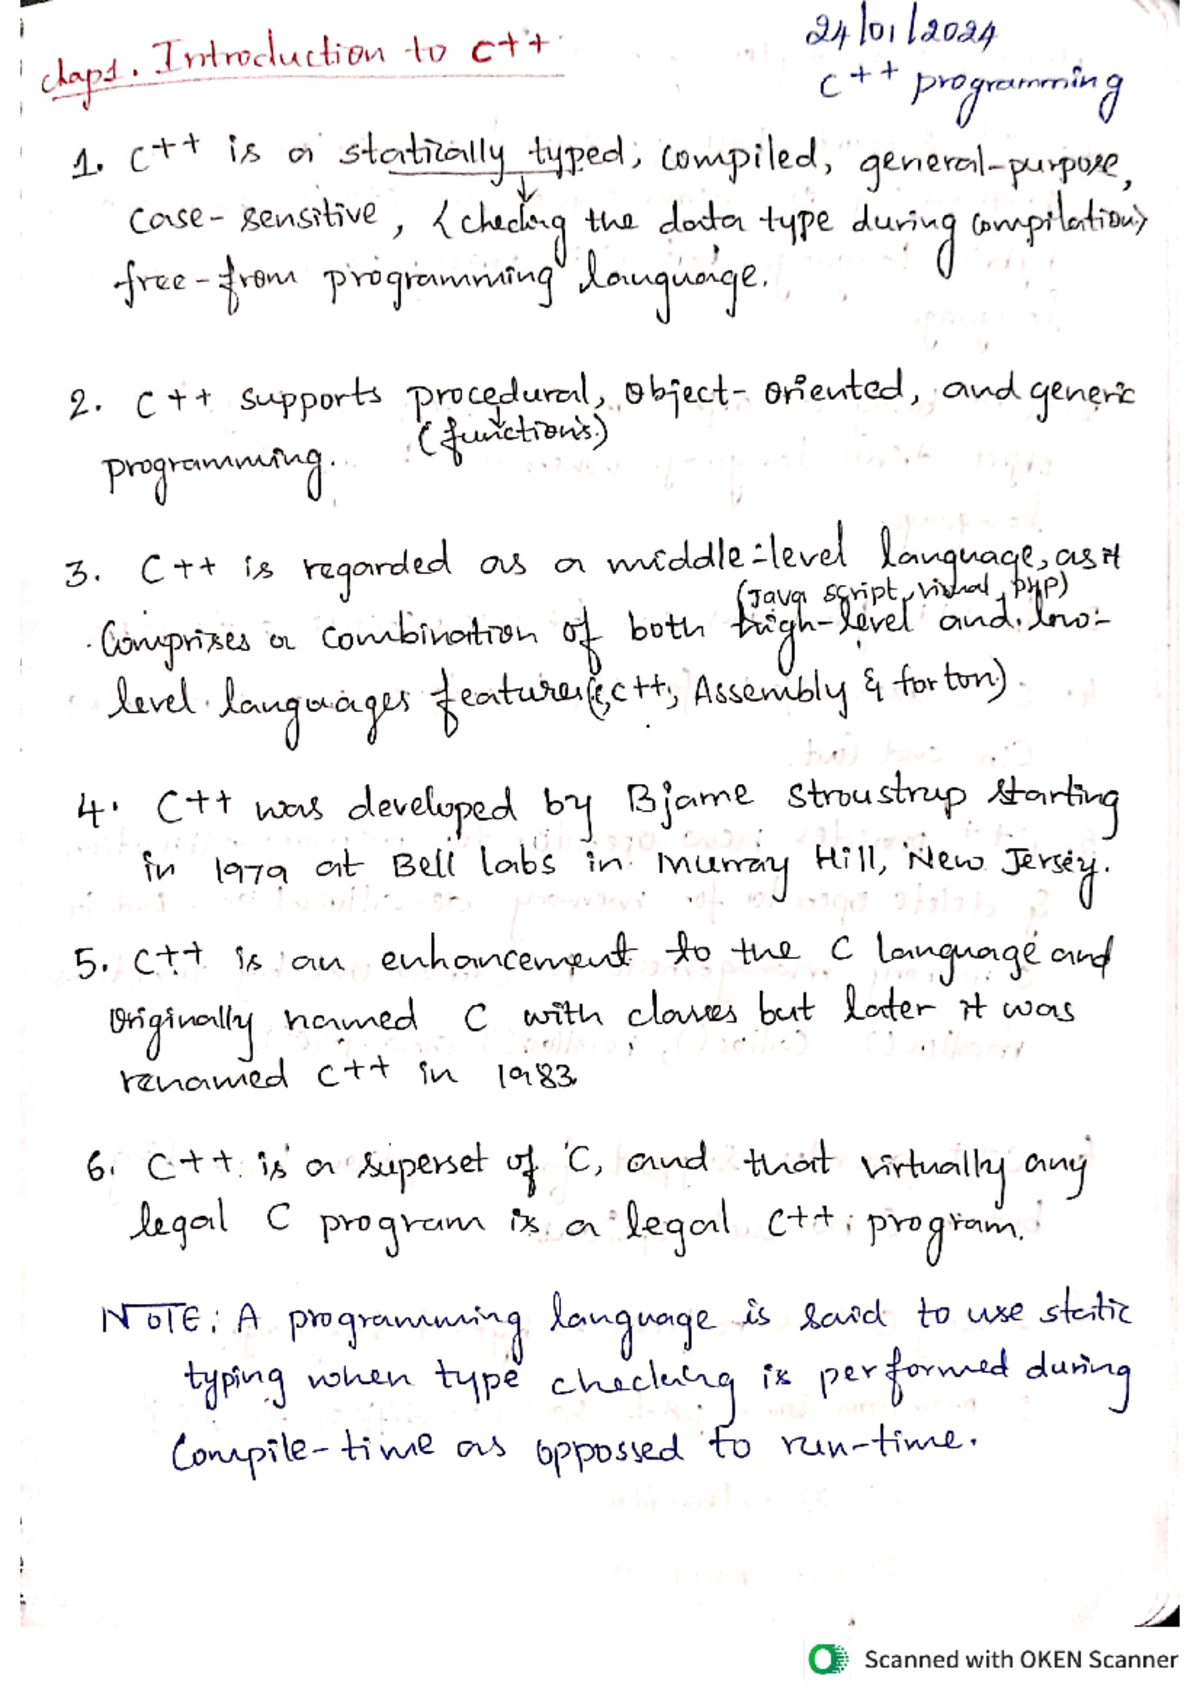 24/01/2024
chap1. Introduction to C++
C++ programming
1. C++ is a statically typed, compiled, general-purpose,
case-sensitive, {checking the data type during compilation}
free-from programming language.
2. C++ supports procedural, object-oriented, and generic
(functions)
programming.
3. C++ is regarded as a middle-level language, as it
(Java script, visual, PHP)
Comprises a combination of both high-level and low-
level languages features(c, c++, Assembly & forton)
4. C++ was developed by Bjame Stroustrup starting
in 1979 at Bell labs in Murray Hill, New Jersey.
5. C++ is an enhancement to the C language and
originally named C with classes but later it was
renamed C++ in 1983
6. C++ is a superset of C, and that virtually any
legal C program is a legal C++ program.
NOTE: A programming language is said to use static
typing when type checking is performed during
Compile-time as oppossed to run-time.
Scanned with OKEN Scanner